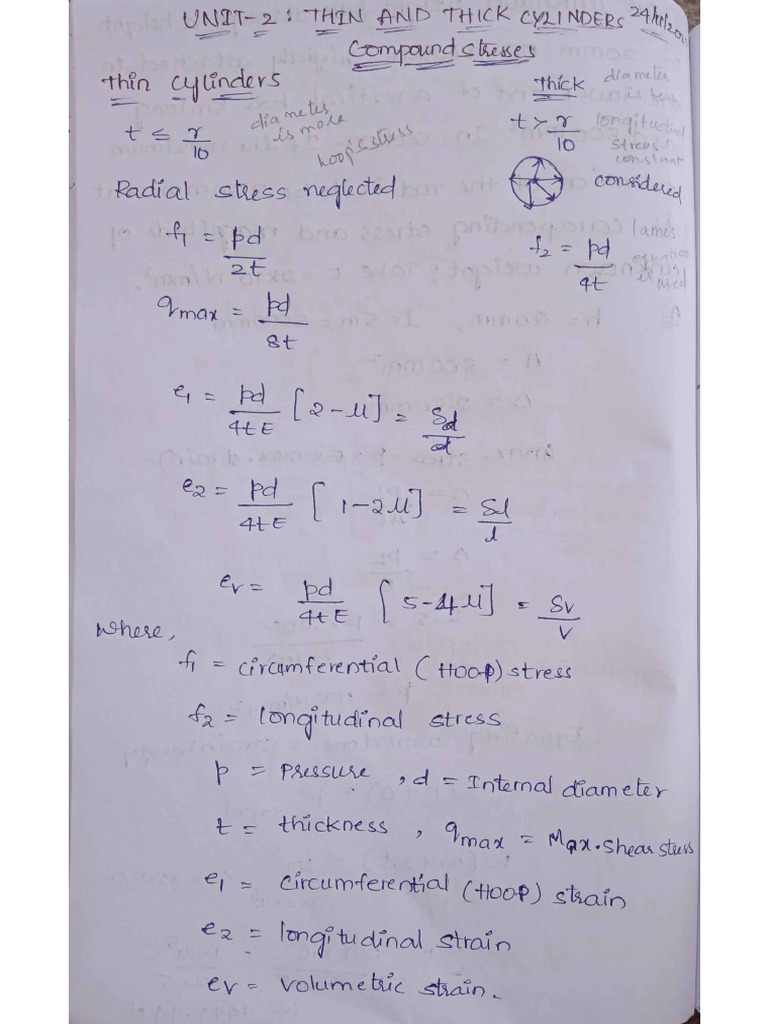 UNIT-2 : THIN AND THICK CYLINDERS
Compound stresses
Thin cylinders
Thick
diameter is less
t ≤ r/10
diameter is more
hoop stress
t > r/10
longitudinal stress constant
Radial stress neglected
considered
f1 = pd/2t
f2 = pd/4t
lames equation is used
qmax = pd/8t
e1 = pd/4tE [2-μ] = δd/d
e2 = pd/4tE [1-2μ] = δl/l
ev = pd/4tE [5-4μ] = δv/v
where,
f1 = circumferential (HOOP) stress
f2 = longitudinal stress
p = pressure , d = Internal diameter
t = thickness , qmax = Max. shear stress
e1 = circumferential (HOOP) strain
e2 = longitudinal strain
ev = volumetric strain.